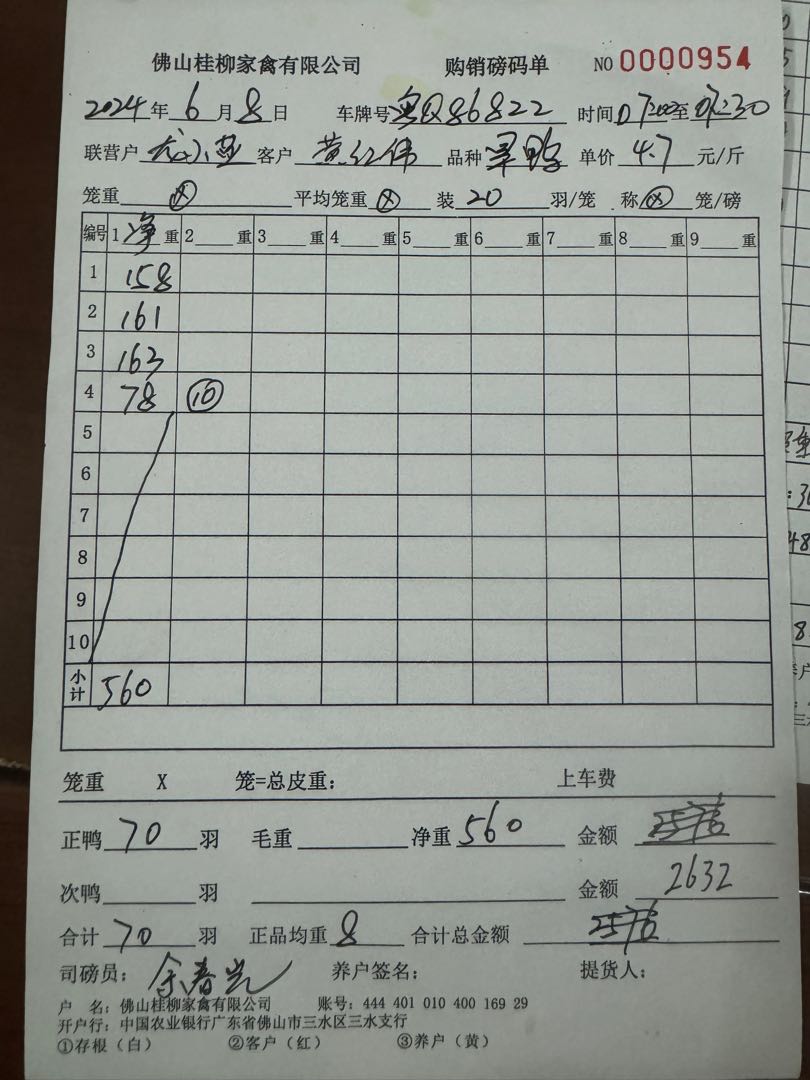 佛山桂柳家禽有限公司 购销磅码单 NO 0000954
2024年 6 月 8 日 车牌号 粤Q86822 时间 07:00至 07:30
联营户 客户 黄红伟 品种 单价 4.7 元/斤
笼重 ⊗ 平均笼重 ⊗ 装 20 羽/笼 称 ⊗ 笼/磅
编号 1 净 重 2 重 3 重 4 重 5 重 6 重 7 重 8 重 9 重
1 158
2 161
3 163
4 78 ⑩
5
6
7
8
9
10
小计 560
笼重 X 笼=总皮重： 上车费
正鸭 70 羽 毛重 净重 560 金额
次鸭 羽 金额 2632
合计 70 羽 正品均重 8 合计总金额
司磅员： 养户签名： 提货人：
户 名：佛山桂柳家禽有限公司 账号：444 401 010 400 169 29
开户行：中国农业银行广东省佛山市三水区三水支行
①存根（白） ②客户（红） ③养户（黄）